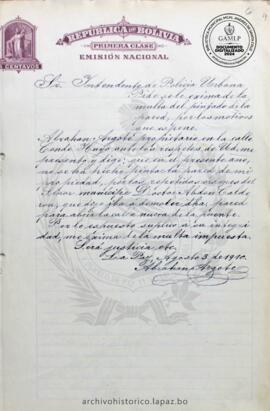 REPUBLICA DE BOLIVIA
PRIMERA CLASE
EMISIÓN NACIONAL
CENTAVOS
GAMLP
DOCUMENTO
DIGITALIZADO
2024
Sr. Intendente de Policía Urbana
Pide se le exima de la
multa del pintado de la
pared, por los motivos
que espone.
Abraham Argote propietario en la calle
Conde Huyo ante los respetos de Ud. me
presento y digo: que en el presente ano,
no se há hecho pintar la pared de mi
propiedad, por las
señor munícipe Dr.
ron, que dijo iba á demoler dha. pared
para abrir la calle nueva de la puente.
Por lo espuesto suplico á su integri
dad, me exima de la multa impuesta.
Será justicia etc.
La Paz, Agosto 3 de 1910.
Abraham Argote
archivohistorico.lapaz.bo